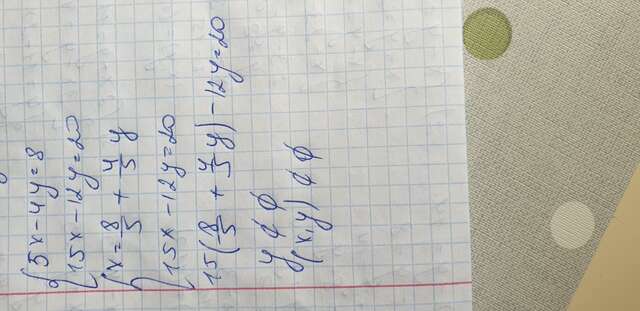 {5x-4y=8
15x-12y=20
{x=8/5 + 4/5 y
15x-12y=20
15(8/5 + 4/5 y)-12y=20
y ∉ ∅
(x,y) ∉ ∅